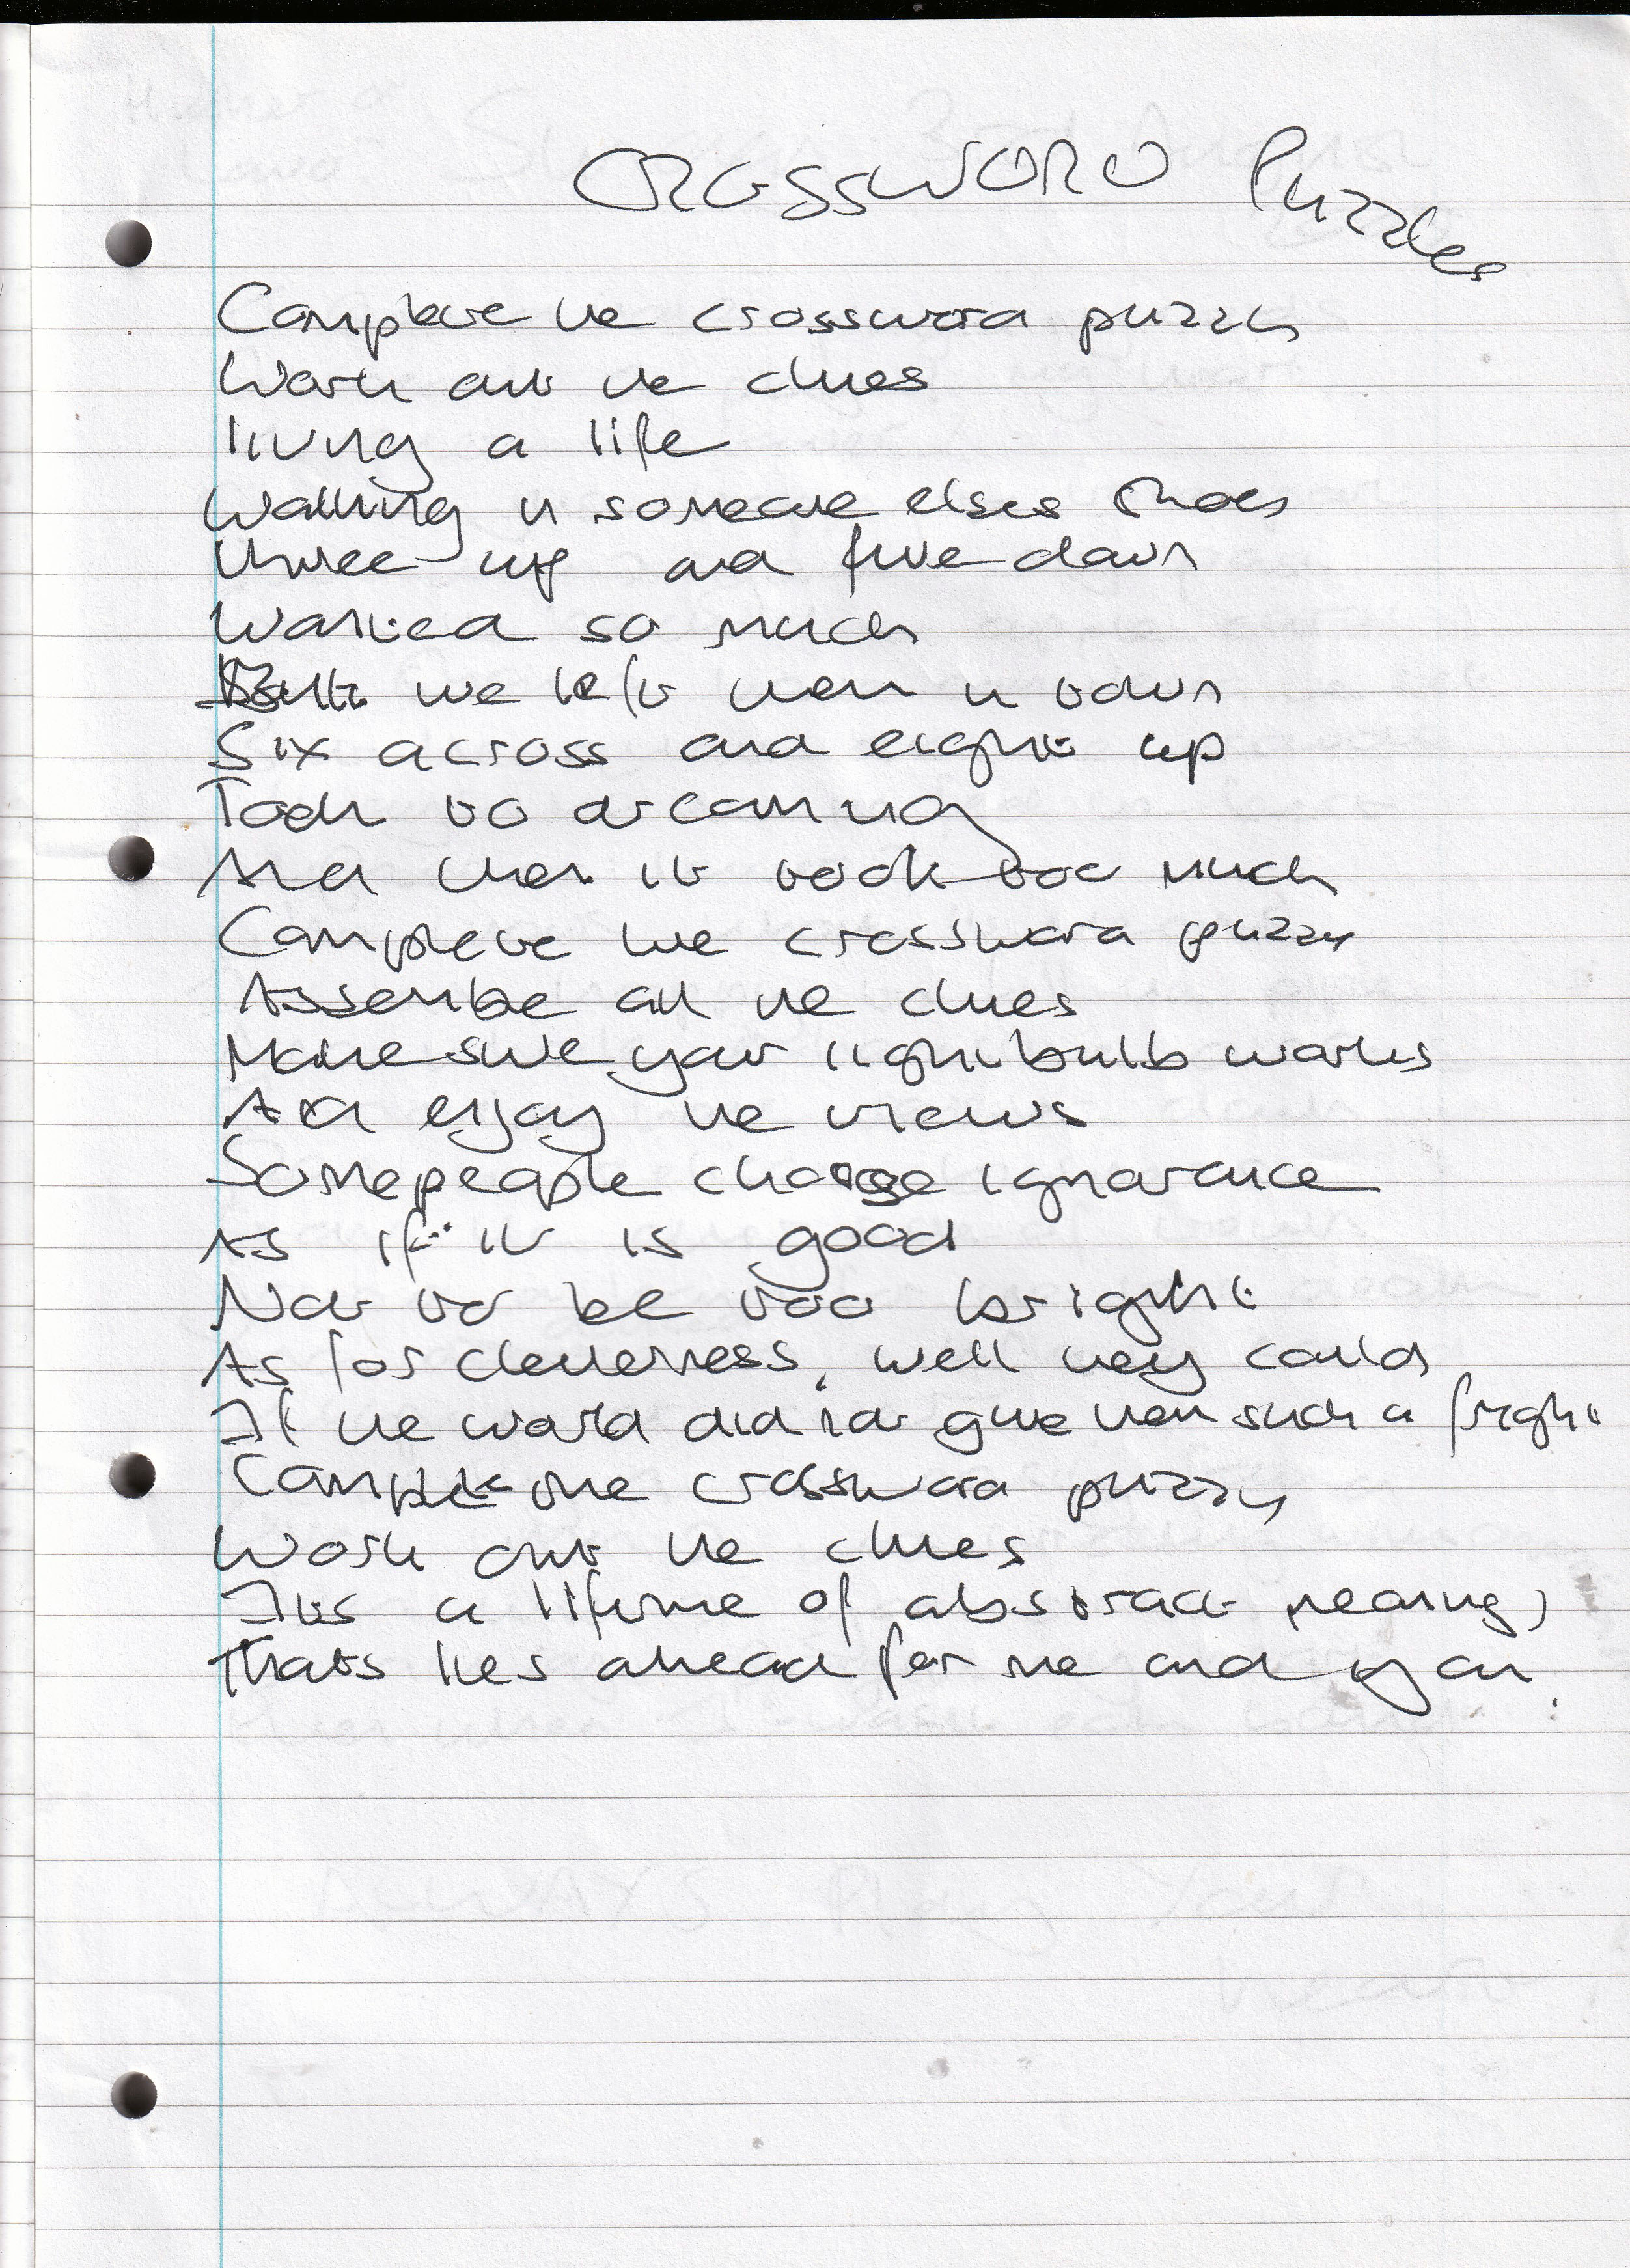 CROSSWORD Puzzles
Complete the crossword puzzle
Work out the clues
living a life
Walking in someone elses shoes
three up and five down
Wanted so much
But we left them in town
Six across and eight up
Took to dreaming
And then it took too much
Complete the crossword puzzle
Assemble all the clues
Make sure your lightbulb works
And enjoy the views
Some people choose ignorance
As if it is good
Not to be too bright
As for cleverness, well they could
If the world did not give them such a fright
Complete the crossword puzzle
Work out the clues
Its a lifetime of abstract meanings
Thats lies ahead for me and you.